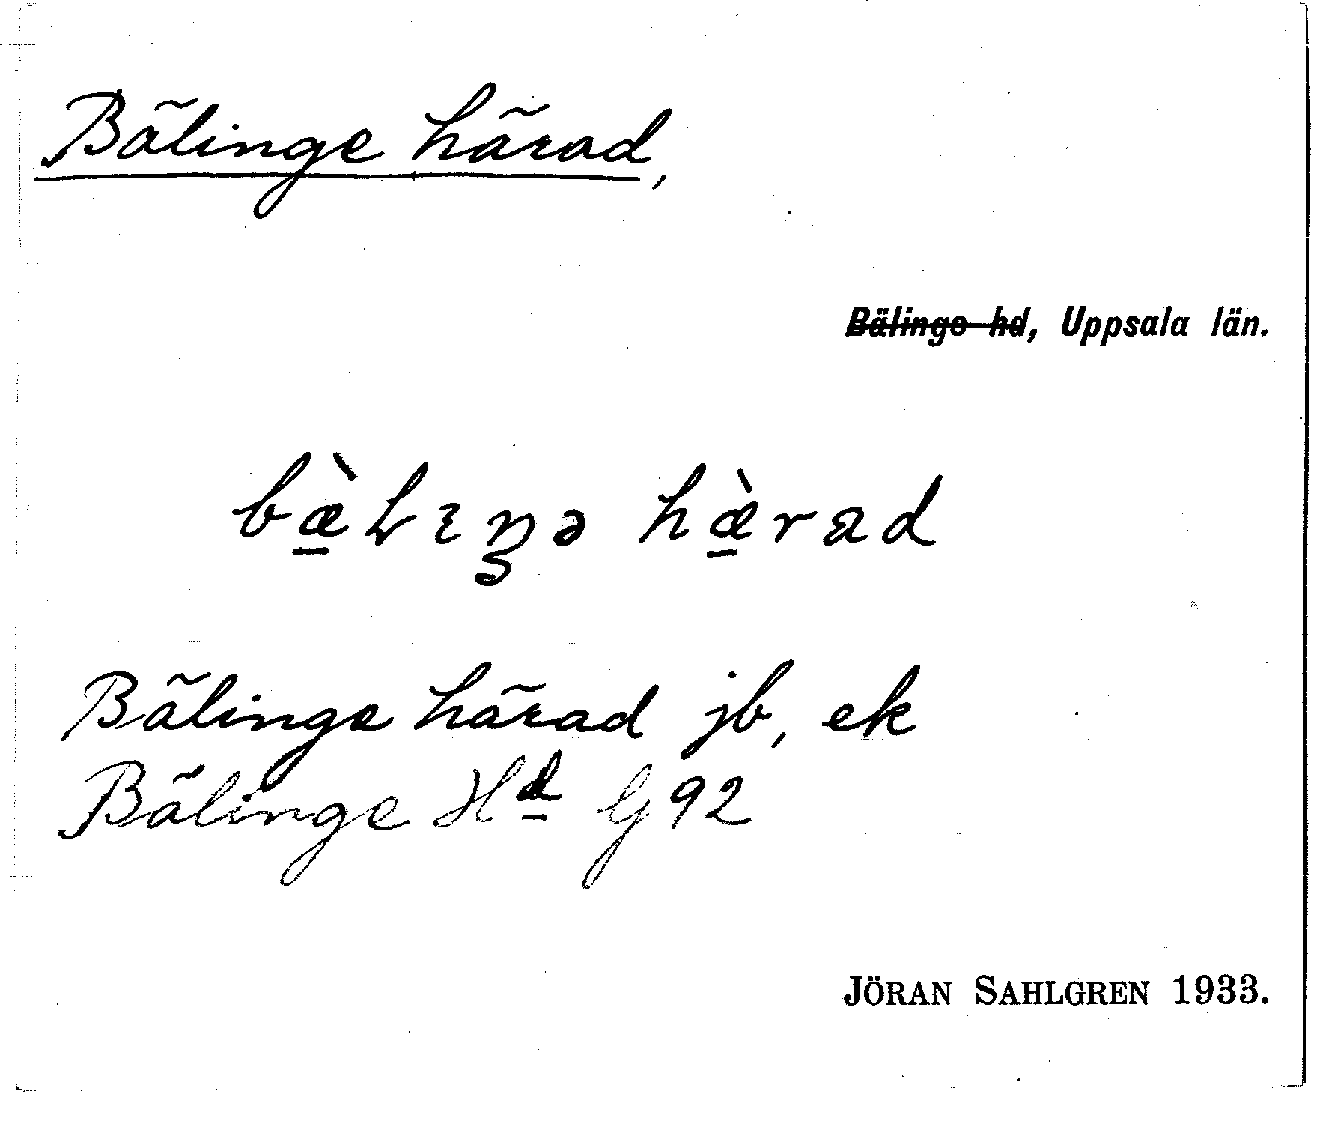 Bälinge härad,
Bälinge hd, Uppsala län.
bæ̠̀Lɪŋə hæ̠̀rad
Bälinge härad jb, ek
Bälinge Hd G92
JÖRAN SAHLGREN 1933.